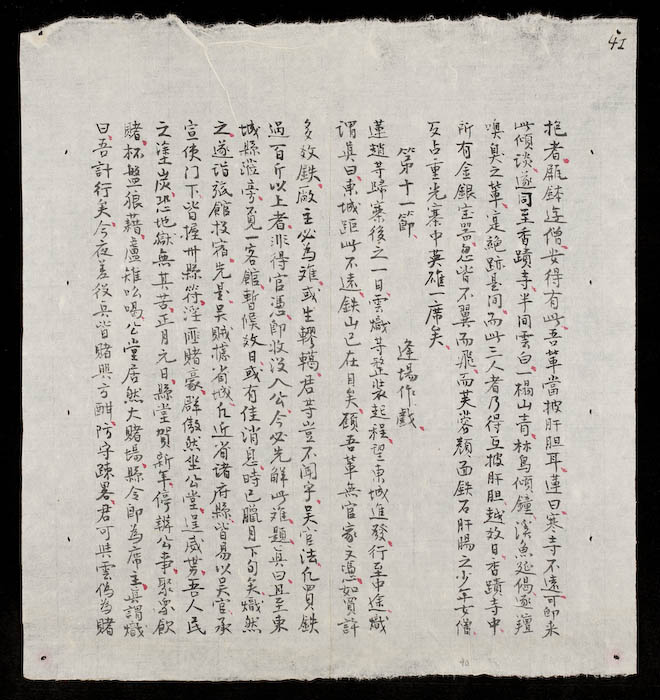 41
抱者甁鉢迕僧安得有此吾軰當披肝胆耳蓮曰寒寺不遠可卽来
此傾谈遂同至香蹟寺半间雲白一榻山青林鳥傾鐘溪魚延偈逐羶
嗅臭之軰寔絶跡是间而此三人者乃得互披肝胆越数日香蹟寺中
所有金銀宝器忽皆不翼而飛而芙蓉顔面鉄石肝腸之少年女僧
又占重光寨中英雄一席矣
第十一節 逢場作戱
蓮趙等歸寨後之一日雲熾等整装起程望東城進發行至中途熾
謂真曰東城距此不遠鉄山已在目矣顧吾軰無官家文憑如買許
多数鉄廠主必为难或生轇轕君等豈不闻乎吴官法凡買鉄
過百斤以上者非得官憑卽收没入公今必先解此难題真曰且至東
城縣滋旁覓一客館暫候数日或有佳消息時已臘月下旬矣熾然
之遂詣張館投宿先是吴賊據省城凡近省诸府縣皆易以吴官承
宣使门下皆握卅縣符淫匪賭豪群傲然坐公堂逞威势吾人民
之塗炭恐地獄無其苦正月元日縣堂賀新年停辦公事聚眾飲
賭杯盤狼藉廬雉吆喝公堂居然大賭場縣令卽為席主真謂熾
曰吾計行矣今夜差役兵皆賭興方酣防守疎畧君可與雲偽为賭